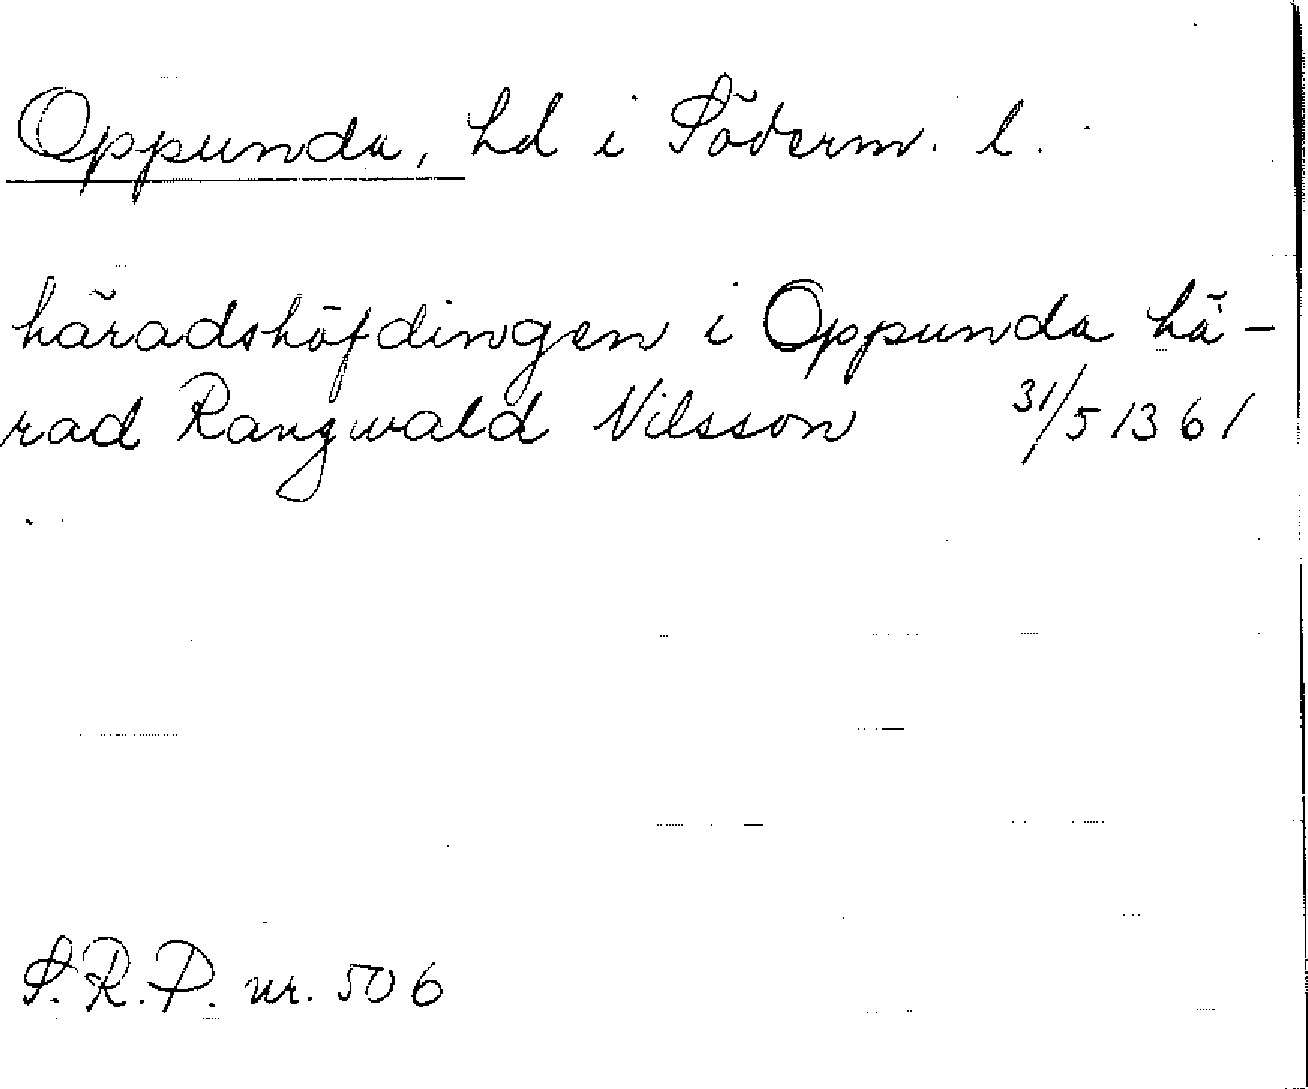 Oppunda, hd i Söderm. l.
häradshöfdingen i Oppunda hä-
rad Rangwald Nilsson 31/5 1361
S.R.P. nr. 506